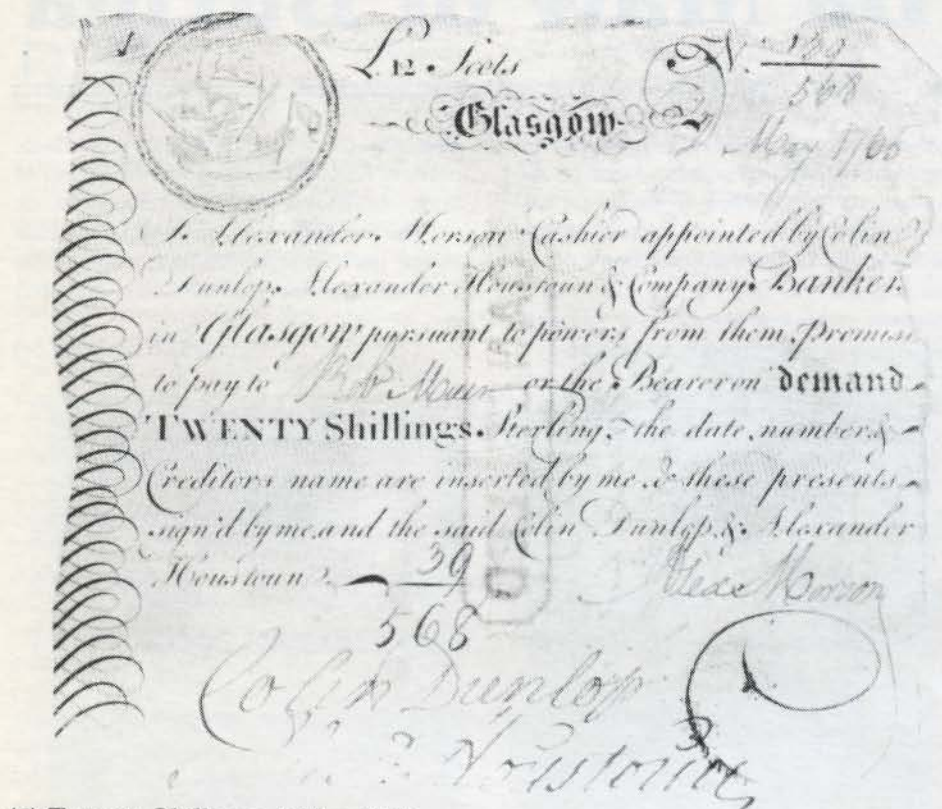 L.12. Scots
No.
568
Glasgow
May 1765
I. Alexander. Morson Cashier appointed by Colin
Dunlop. Alexander Houstoun & Company. Bankers
in Glasgow pursuant to powers from them. Promise
to pay to Rob Muir or the Bearer on demand
TWENTY Shillings. Sterling, the date, number &
Creditors name are inserted by me & these presents
sign'd by me and the said Colin Dunlop & Alexander
Houstoun. 39
568
Alex Morson
Colin Dunlop
Houstoun